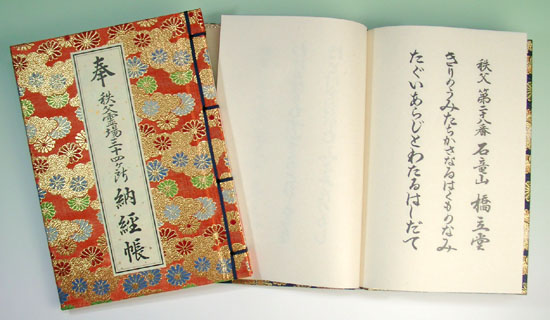 奉 秩父霊場三十四ヶ所 納経帳
秩父 第二十八番 石竜山 橋立堂
きりのうみたちかさなるはくものなみ
たぐいあらじとわたるはしだて